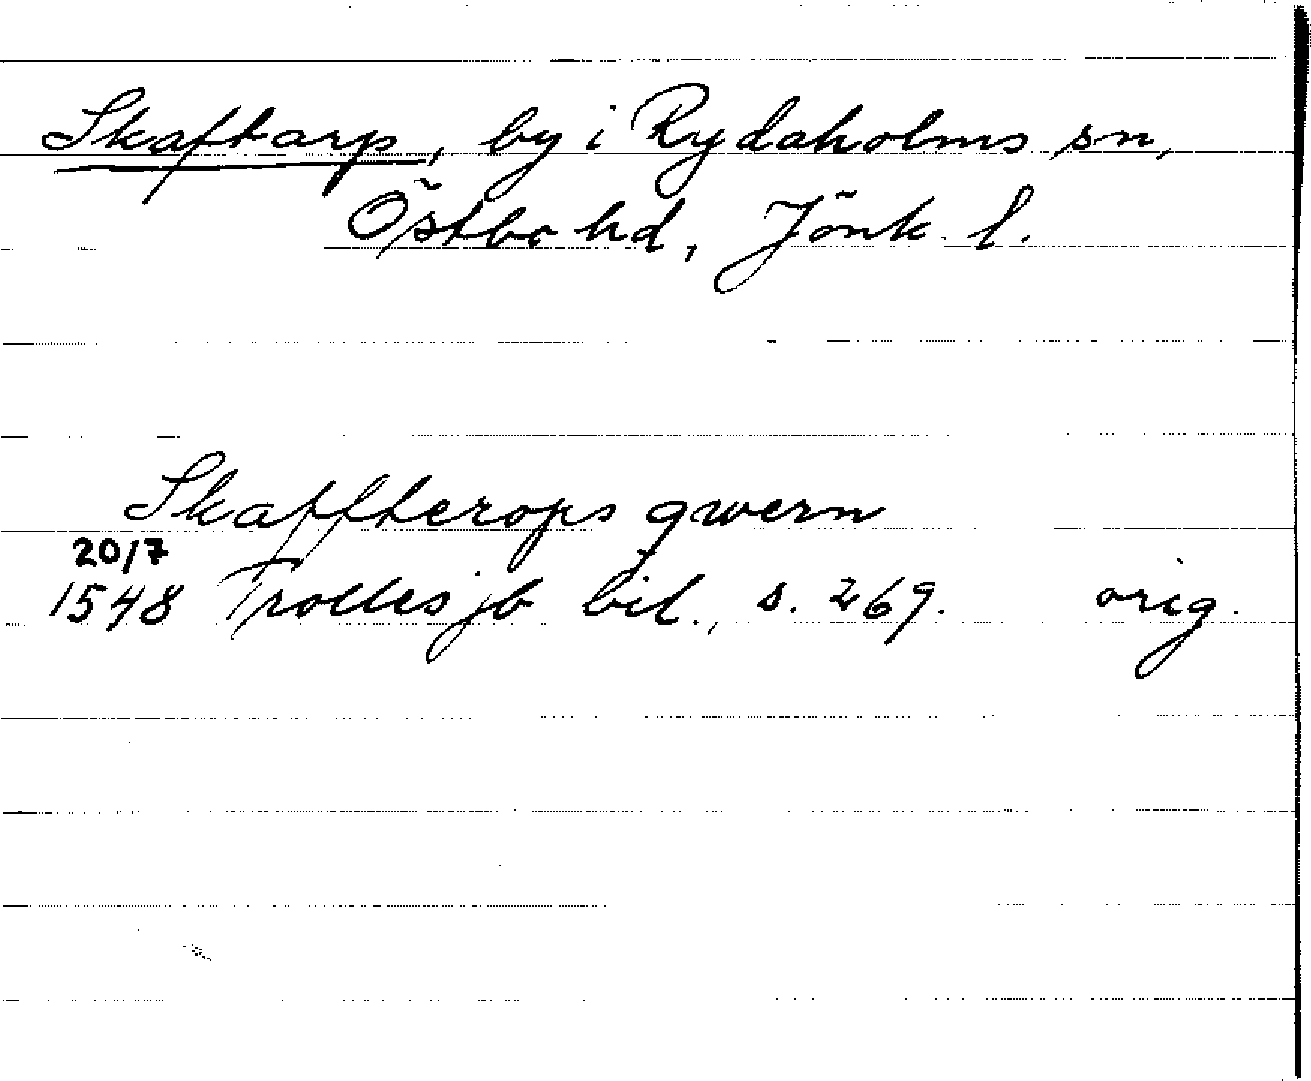 Skaftarp, by i Rydaholms sn,
Östbo hd, Jönk. l.
Skaffterops qwern
20/7
1548 Trolles jb bil., s. 269. orig.